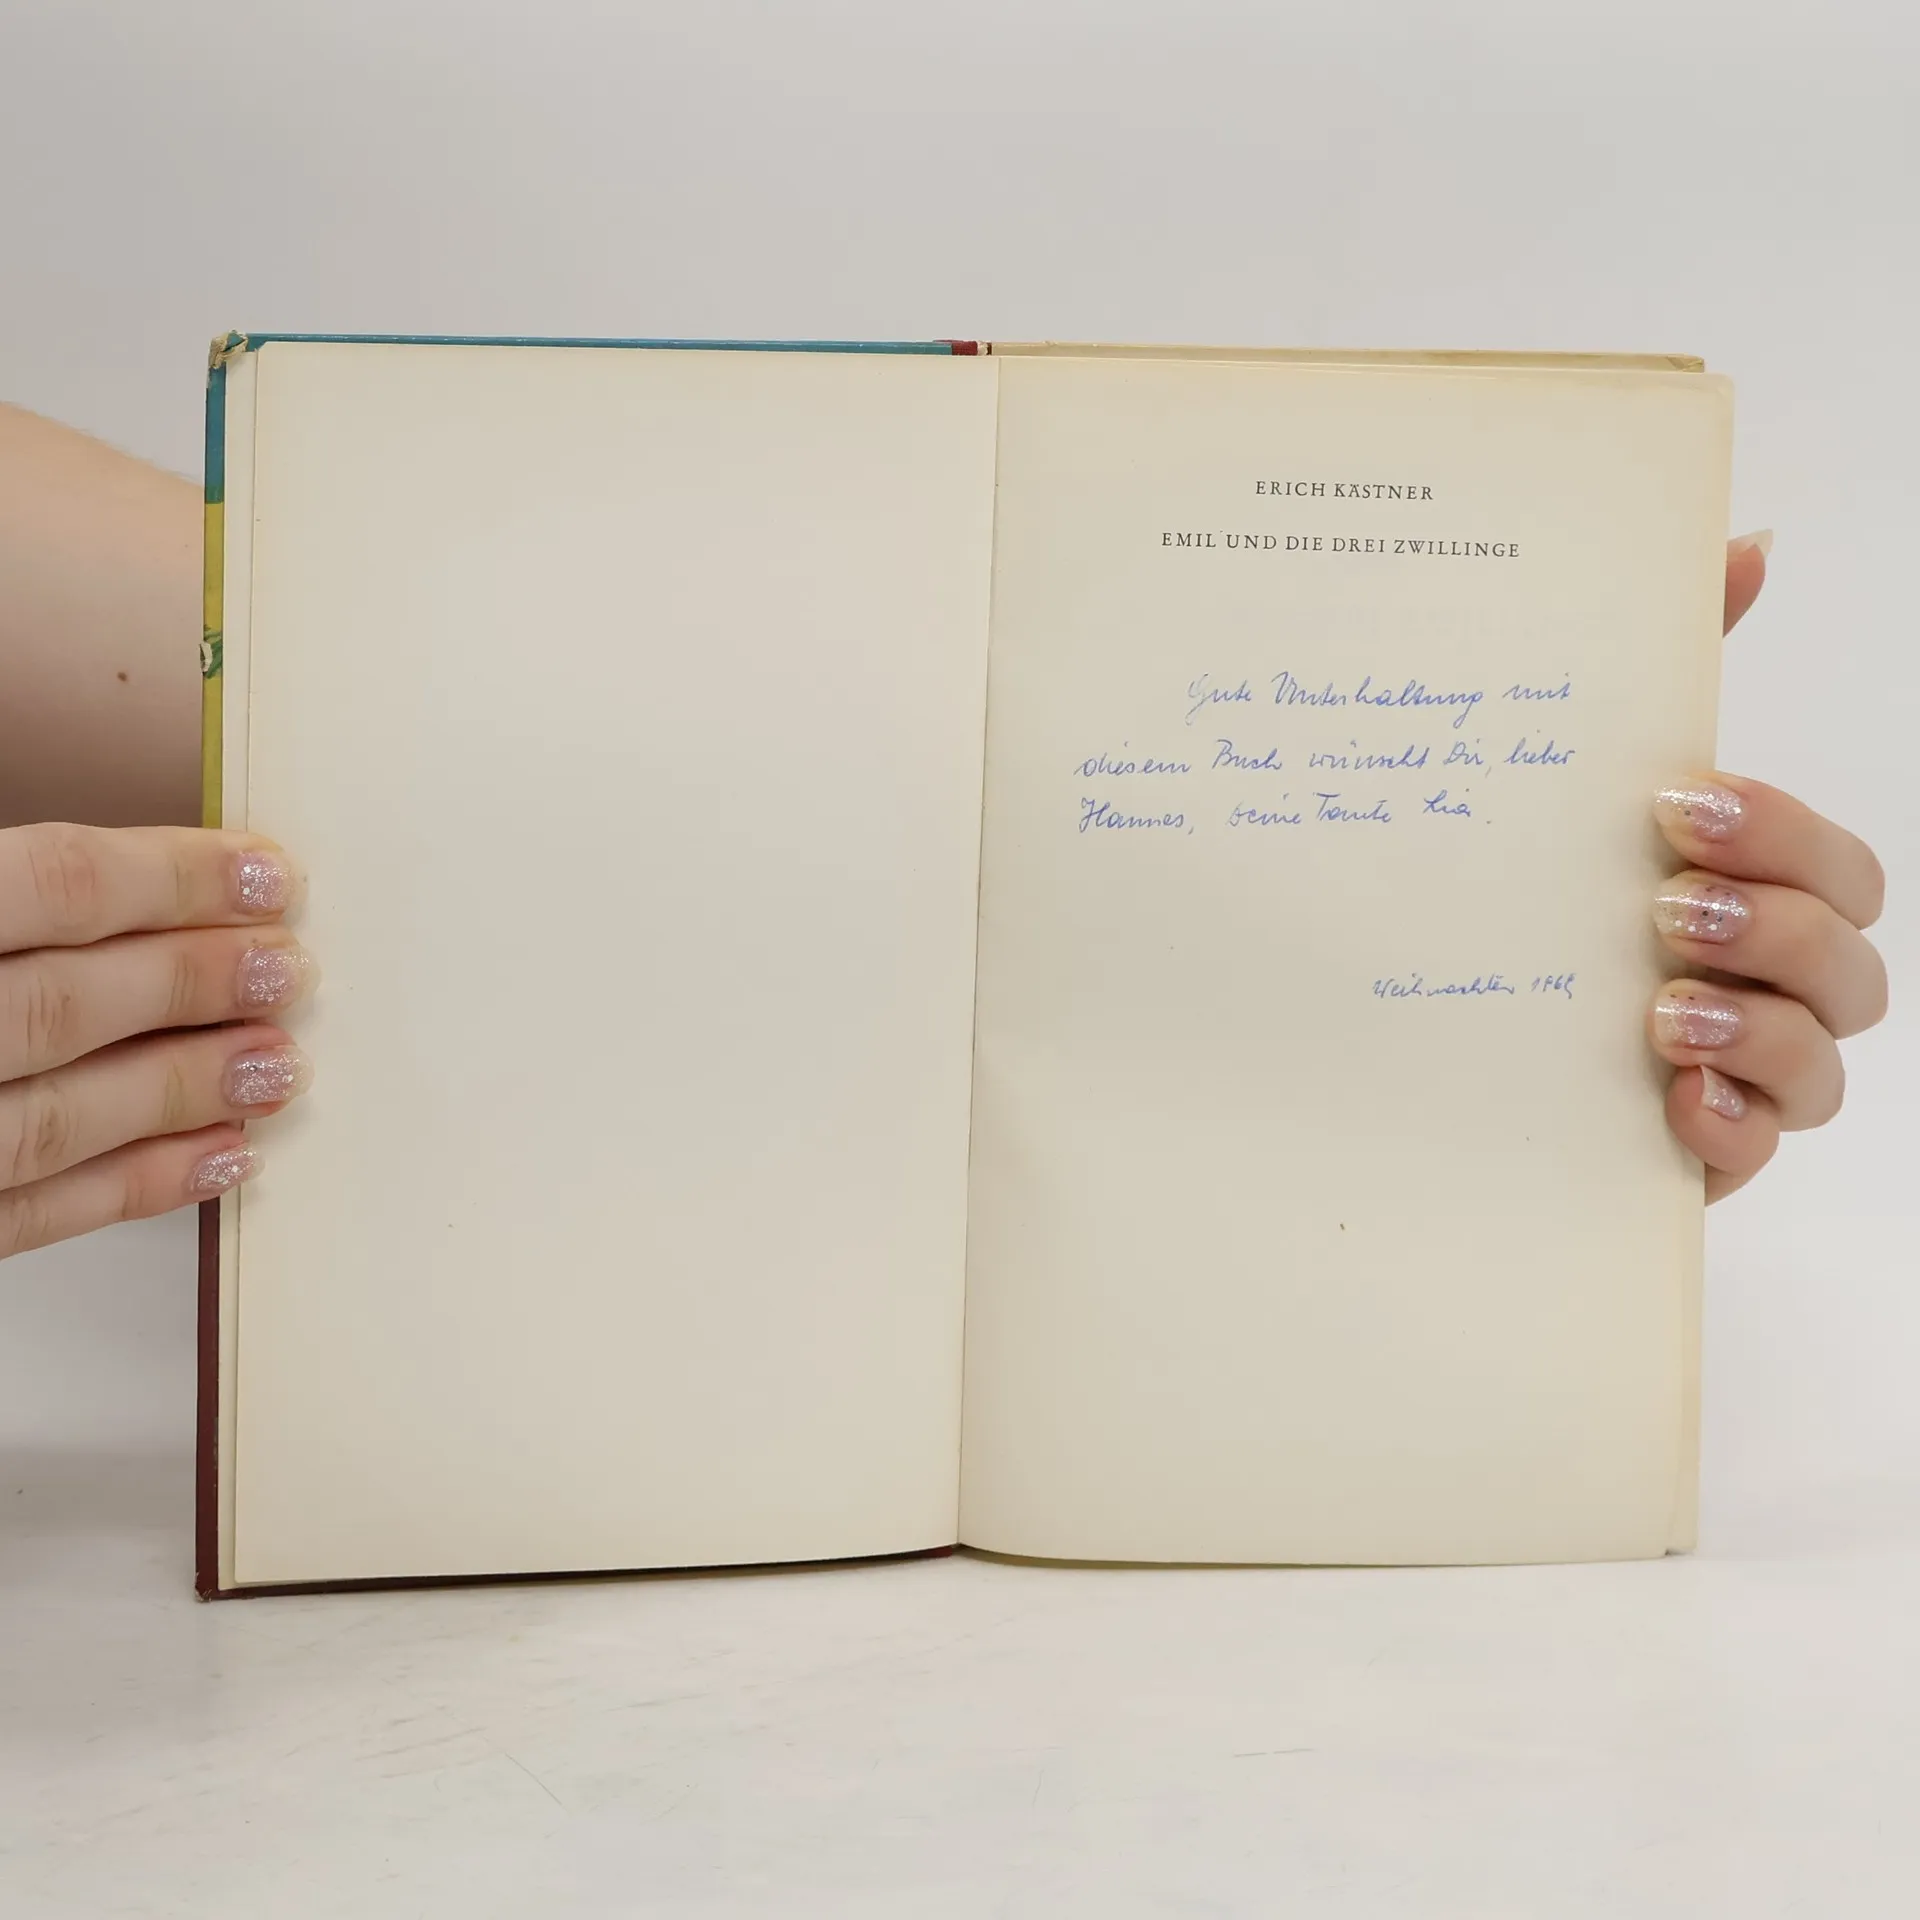 ERICH KÄSTNER
EMIL UND DIE DREI ZWILLINGE
Gute Unterhaltung mit
diesem Buch wünscht Dir, lieber
Hannes, deine Tante Lia.
Weihnachten